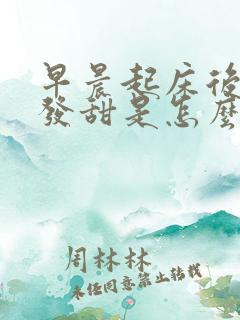 早晨起床後
發甜是怎麼
周林林
未经同意禁止转载